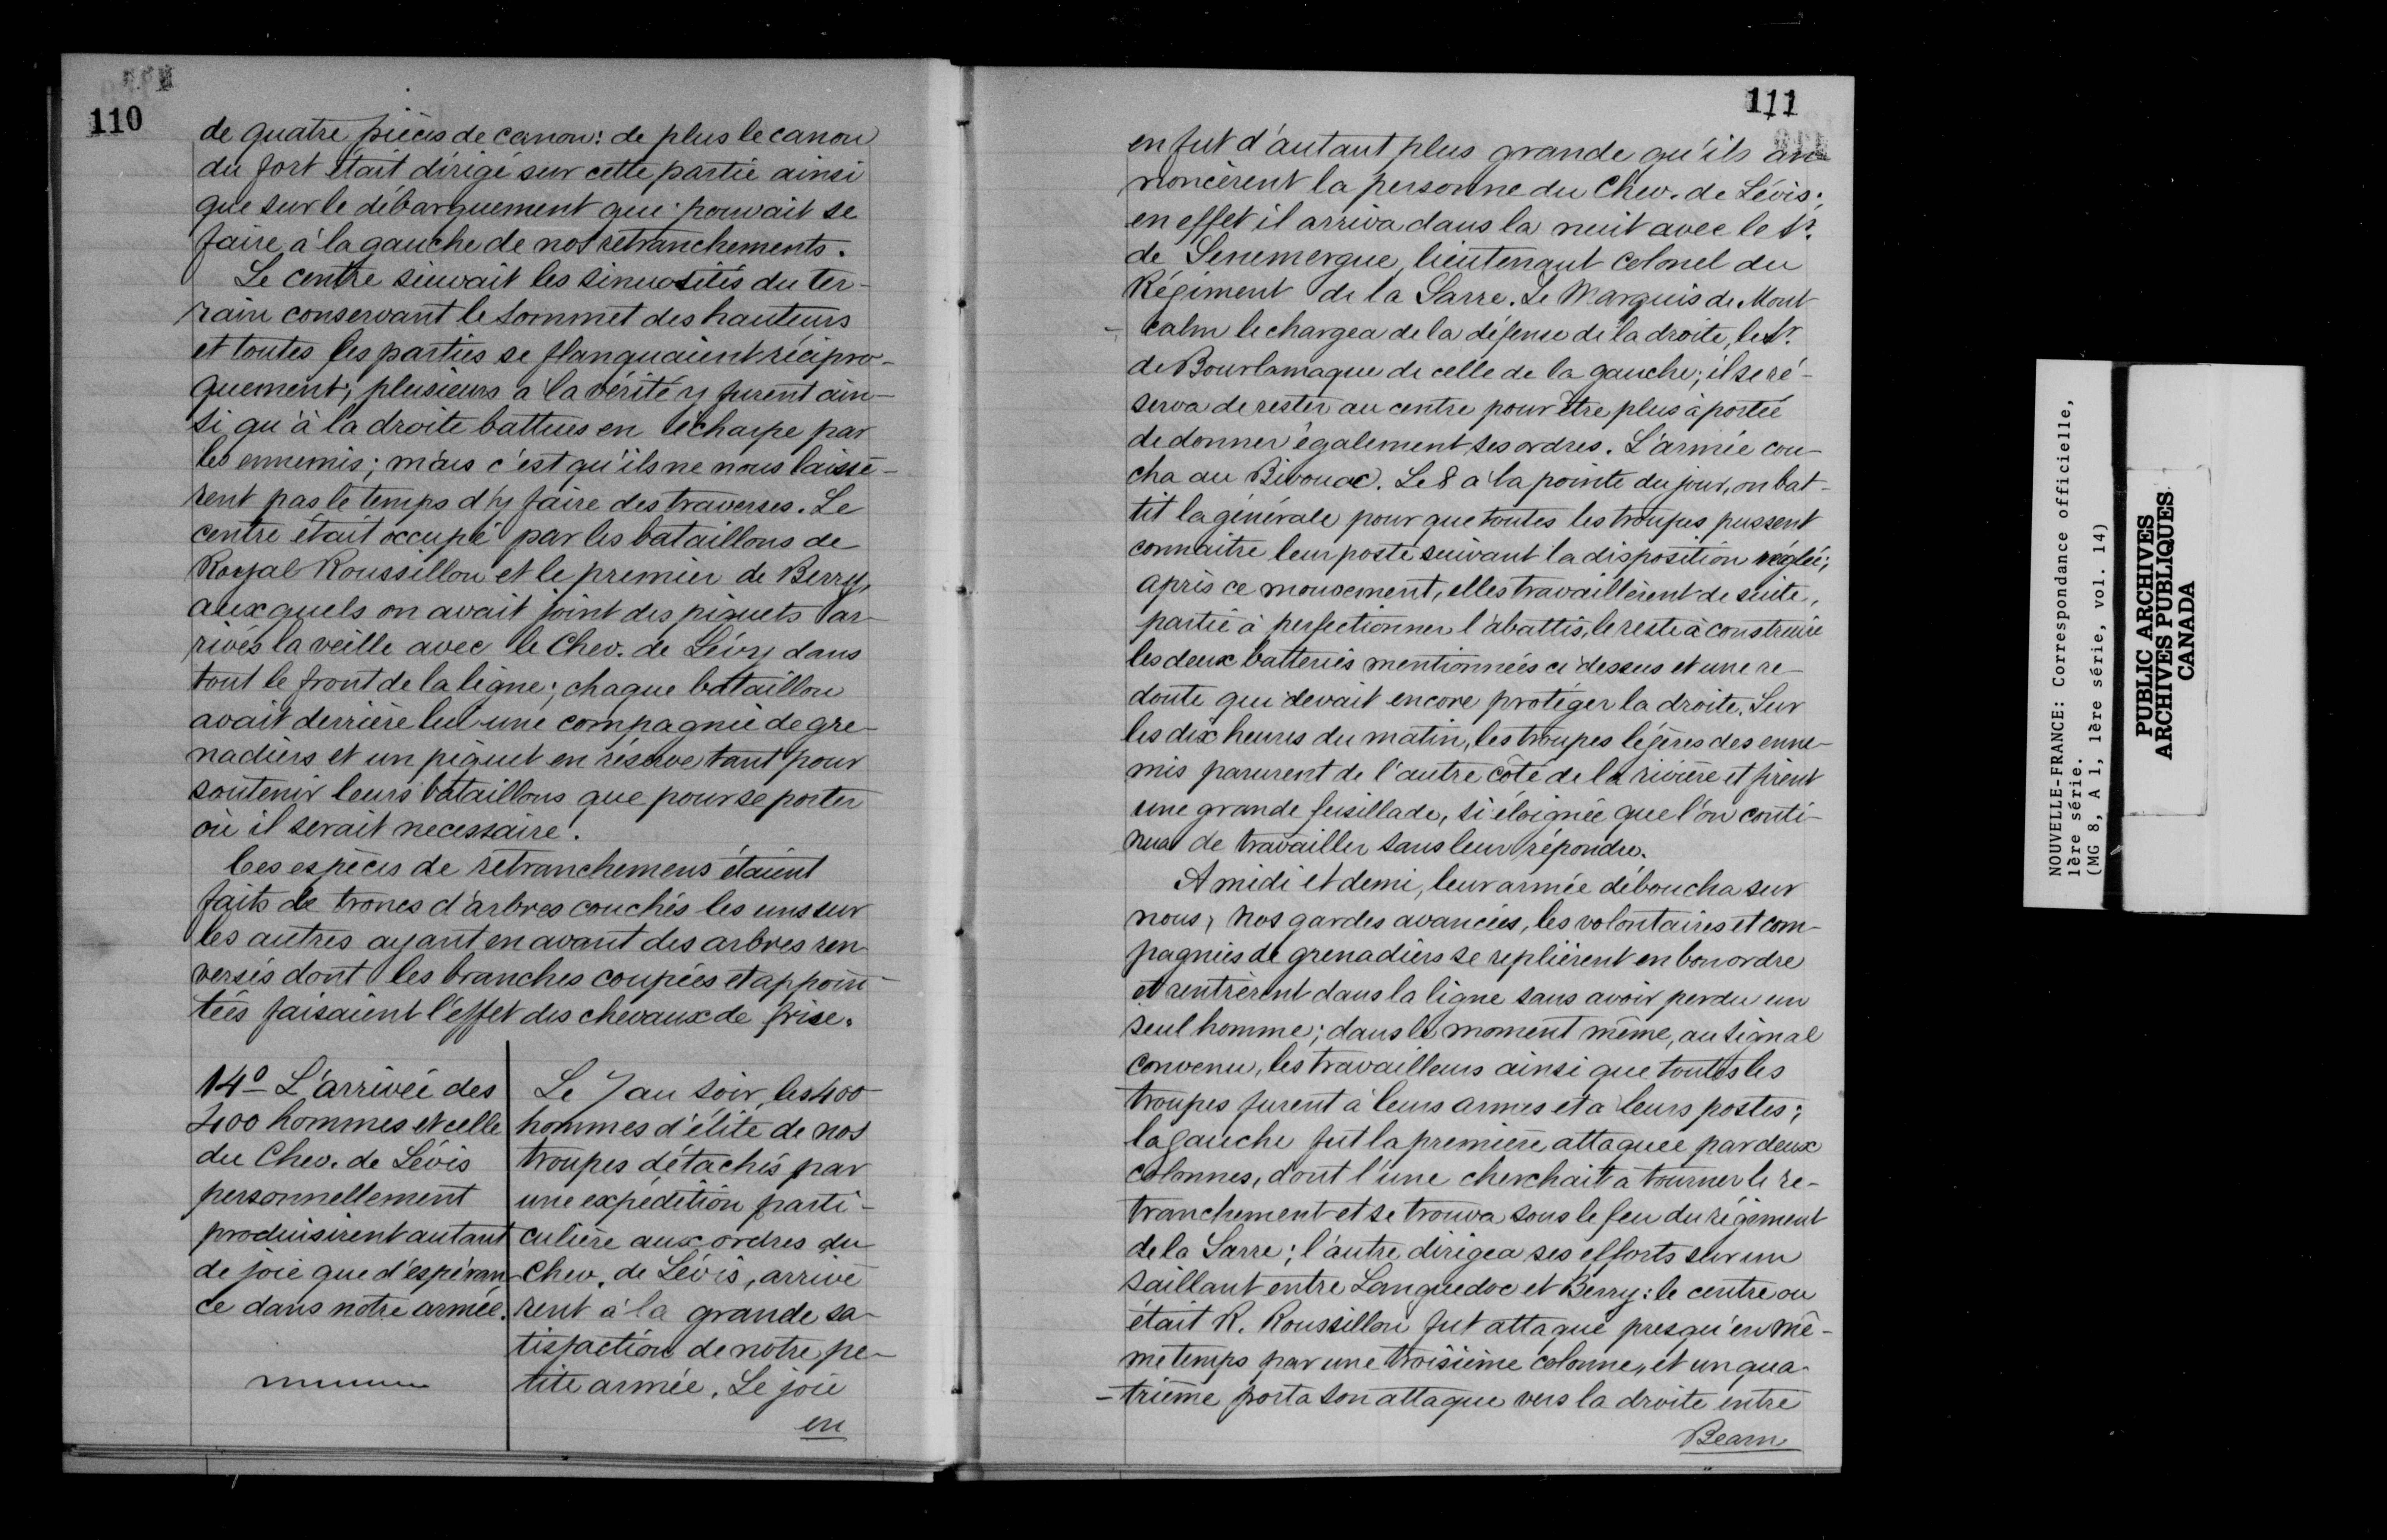 110
de quatre pièces de canon: de plus le canon
du fort était dirigé sur cette partie ainsi
que sur le débarquement que pouvait se
faire à la gauche de nos retranchements.
Le centre suivait les sinuosités du ter-
rain conservant le sommet des hauteurs
et toutes les parties se flanquaient récipro-
quement; plusieurs a la vérité y furent ain-
si qu'à la droite battues en écharpe par
les ennemis; mais c'est qu'ils ne nous laissè-
rent pas le temps d'y faire des traverses. Le
centre était occupé par les bataillons de
Royal Roussillon et le premier de Berry,
auxquels on avait joint des piquets ar-
rivés la veille avec le Chev. de Lévy dans
tout le front de la ligne; chaque bataillon
avait derrière lui une compagnie de gre-
nadiers et un piquet en réserve tant pour
soutenir leurs bataillons que pour se porter
où il serait necessaire.
Ces espèces de retranchemens étaient
faits de troncs d'arbres couchés les uns sur
les autres ayant en avant des arbres ren-
versés dont les branches coupées et appoin-
tées faisaient l'effet des chevaux de frise.
14º L'arrivée des
400 hommes et celle
du Chev. de Lévis
personnellement
produisirent autant
de joie que d'espéran-
ce dans notre armée.
Le 7 au soir, les 400
hommes d'élite de nos
troupes détachés par
une expédition parti-
culière aux ordres du
Chev. de Lévis, arrivè
rent à la grande sa-
tisfaction de notre pe-
tite armée. Le joie
en
111
en fut d'autant plus grande qu'ils an-
noncèrent la personne du Chev. de Lévis;
en effet il arriva dans la nuit avec le Sr.
de Senemergue, lieutenant colonel du
Régiment de la Sarre. Le Marquis de Mont-
calm le chargea de la défense de la droite, le Sr.
de Bourlamaque de celle de la gauche; il se ré-
serva de rester au centre pour être plus à portée
de donner également ses ordres. L'armée cou-
cha au Bivouac. Le 8 a la pointe du jour, on bat-
tit la générale pour que toutes les troupes pussent
connaitre leur poste suivant la disposition réglée;
après ce mouvement, elles travaillèrent de suite,
partie à perfectionner l'abattis, le reste à construire
les deux batteries mentionnées ci dessus et une re-
doute qui devait encore protéger la droite. Sur
les dix heures du matin, les troupes légères des enne-
mis parurent de l'autre côté de la rivière et firent
une grande fusillade, si éloignée que l'on conti-
nua de travailler sans leur répondre.
A midi et demi, leur armée déboucha sur
nous, nos gardes avancées, les volontaires et com-
pagnies de grenadiers se replièrent en bon ordre
et rentrèrent dans la ligne sans avoir perdu un
seul homme; dans le moment même, au signal
convenu, les travailleurs ainsi que toutes les
troupes furent à leurs armes et a leurs postes;
la gauche fut la première attaquée par deux
colonnes, dont l'une cherchait à tourner le re-
tranchement et se trouva sous le feu du régiment
de la Sarre; l'autre dirigea ses efforts sur un
saillant entre Languedoc et Berry: le centre ou
était R. Roussillon fut attaqué presqu'en mê-
me temps par une troisième colonne, et un qua-
trième porta son attaque vers la droite entre
Bearn
NOUVELLE-FRANCE: Correspondance officielle,
1ère série.
(MG 8, A 1, 1ère série, vol. 14)
PUBLIC ARCHIVES
ARCHIVES PUBLIQUES
CANADA